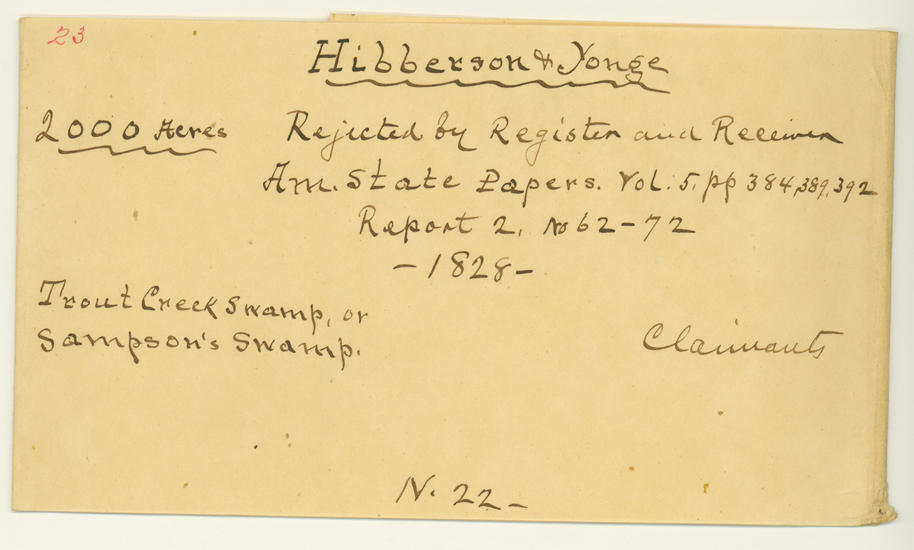 23
Hibberson & Yonge
2000 Acres
Rejected by Register and Receiver
Am. State Papers. Vol. 5, pp 384, 389, 392
Report 2, No 62-72
-1828-
Trout Creek Swamp, or
Sampson's Swamp.
Claimants
N. 22-